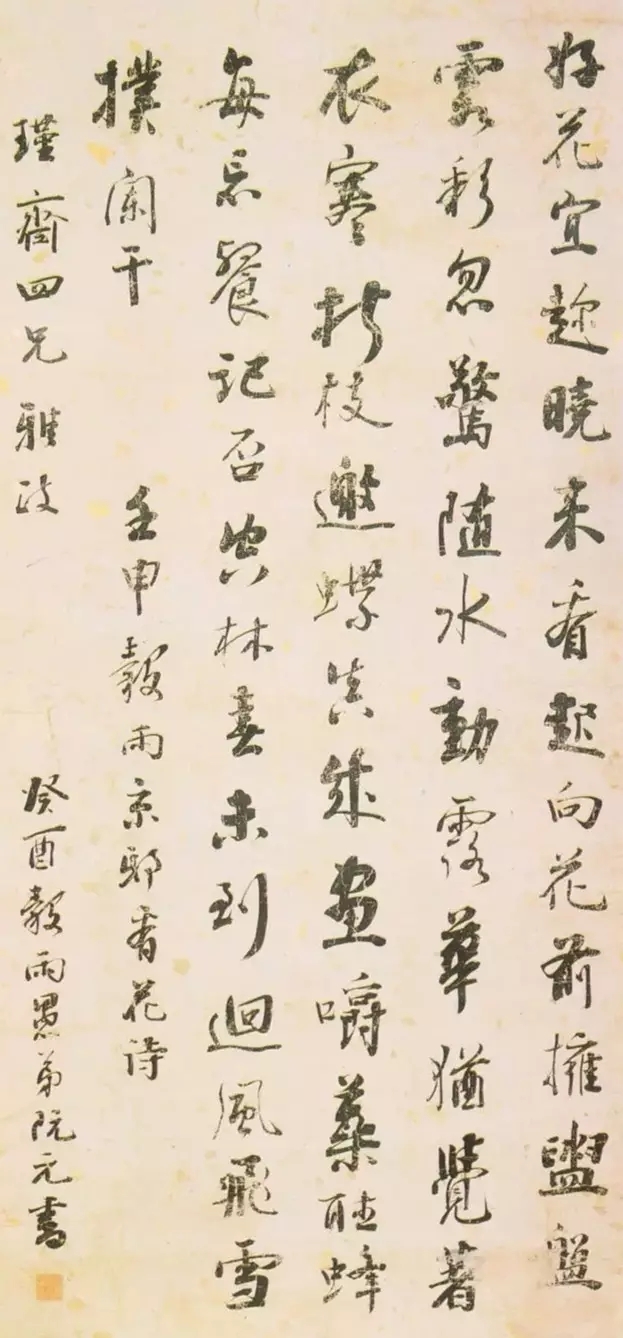 好花宜趁曉來看起向花前擁盥盤
霞彩忽驚隨水動露華猶覺著
衣寒折枝邀蝶真成畫嚼蘂聽蜂
每忘餐記否空林春未到迴風飛雪
撲闌干
壬申穀雨京邸看花詩
瑾齋四兄雅政
癸酉穀雨愚弟阮元書